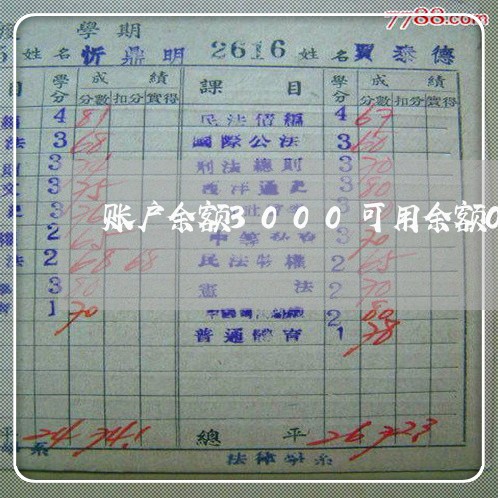 7788.com
學期
姓名 忻鼎明 2616 姓名 賈泰德
目 學分 成績 課目 學分 成績
分數 扣分 實得 分數 扣分 實得
4 81 民法債編 4 67
法 3 68 國際公法 3 60
3 刑法總則 3 70
3 75 西洋通史 3 80
账户余额3000可用余额0
2 中等 3 70
法 2 68 68 民法物權 2 65
3 80 憲法 2 70
1 70 2 80
普通體育 1 78
平 24 74.1 總平 26 72.3
系 法律學系